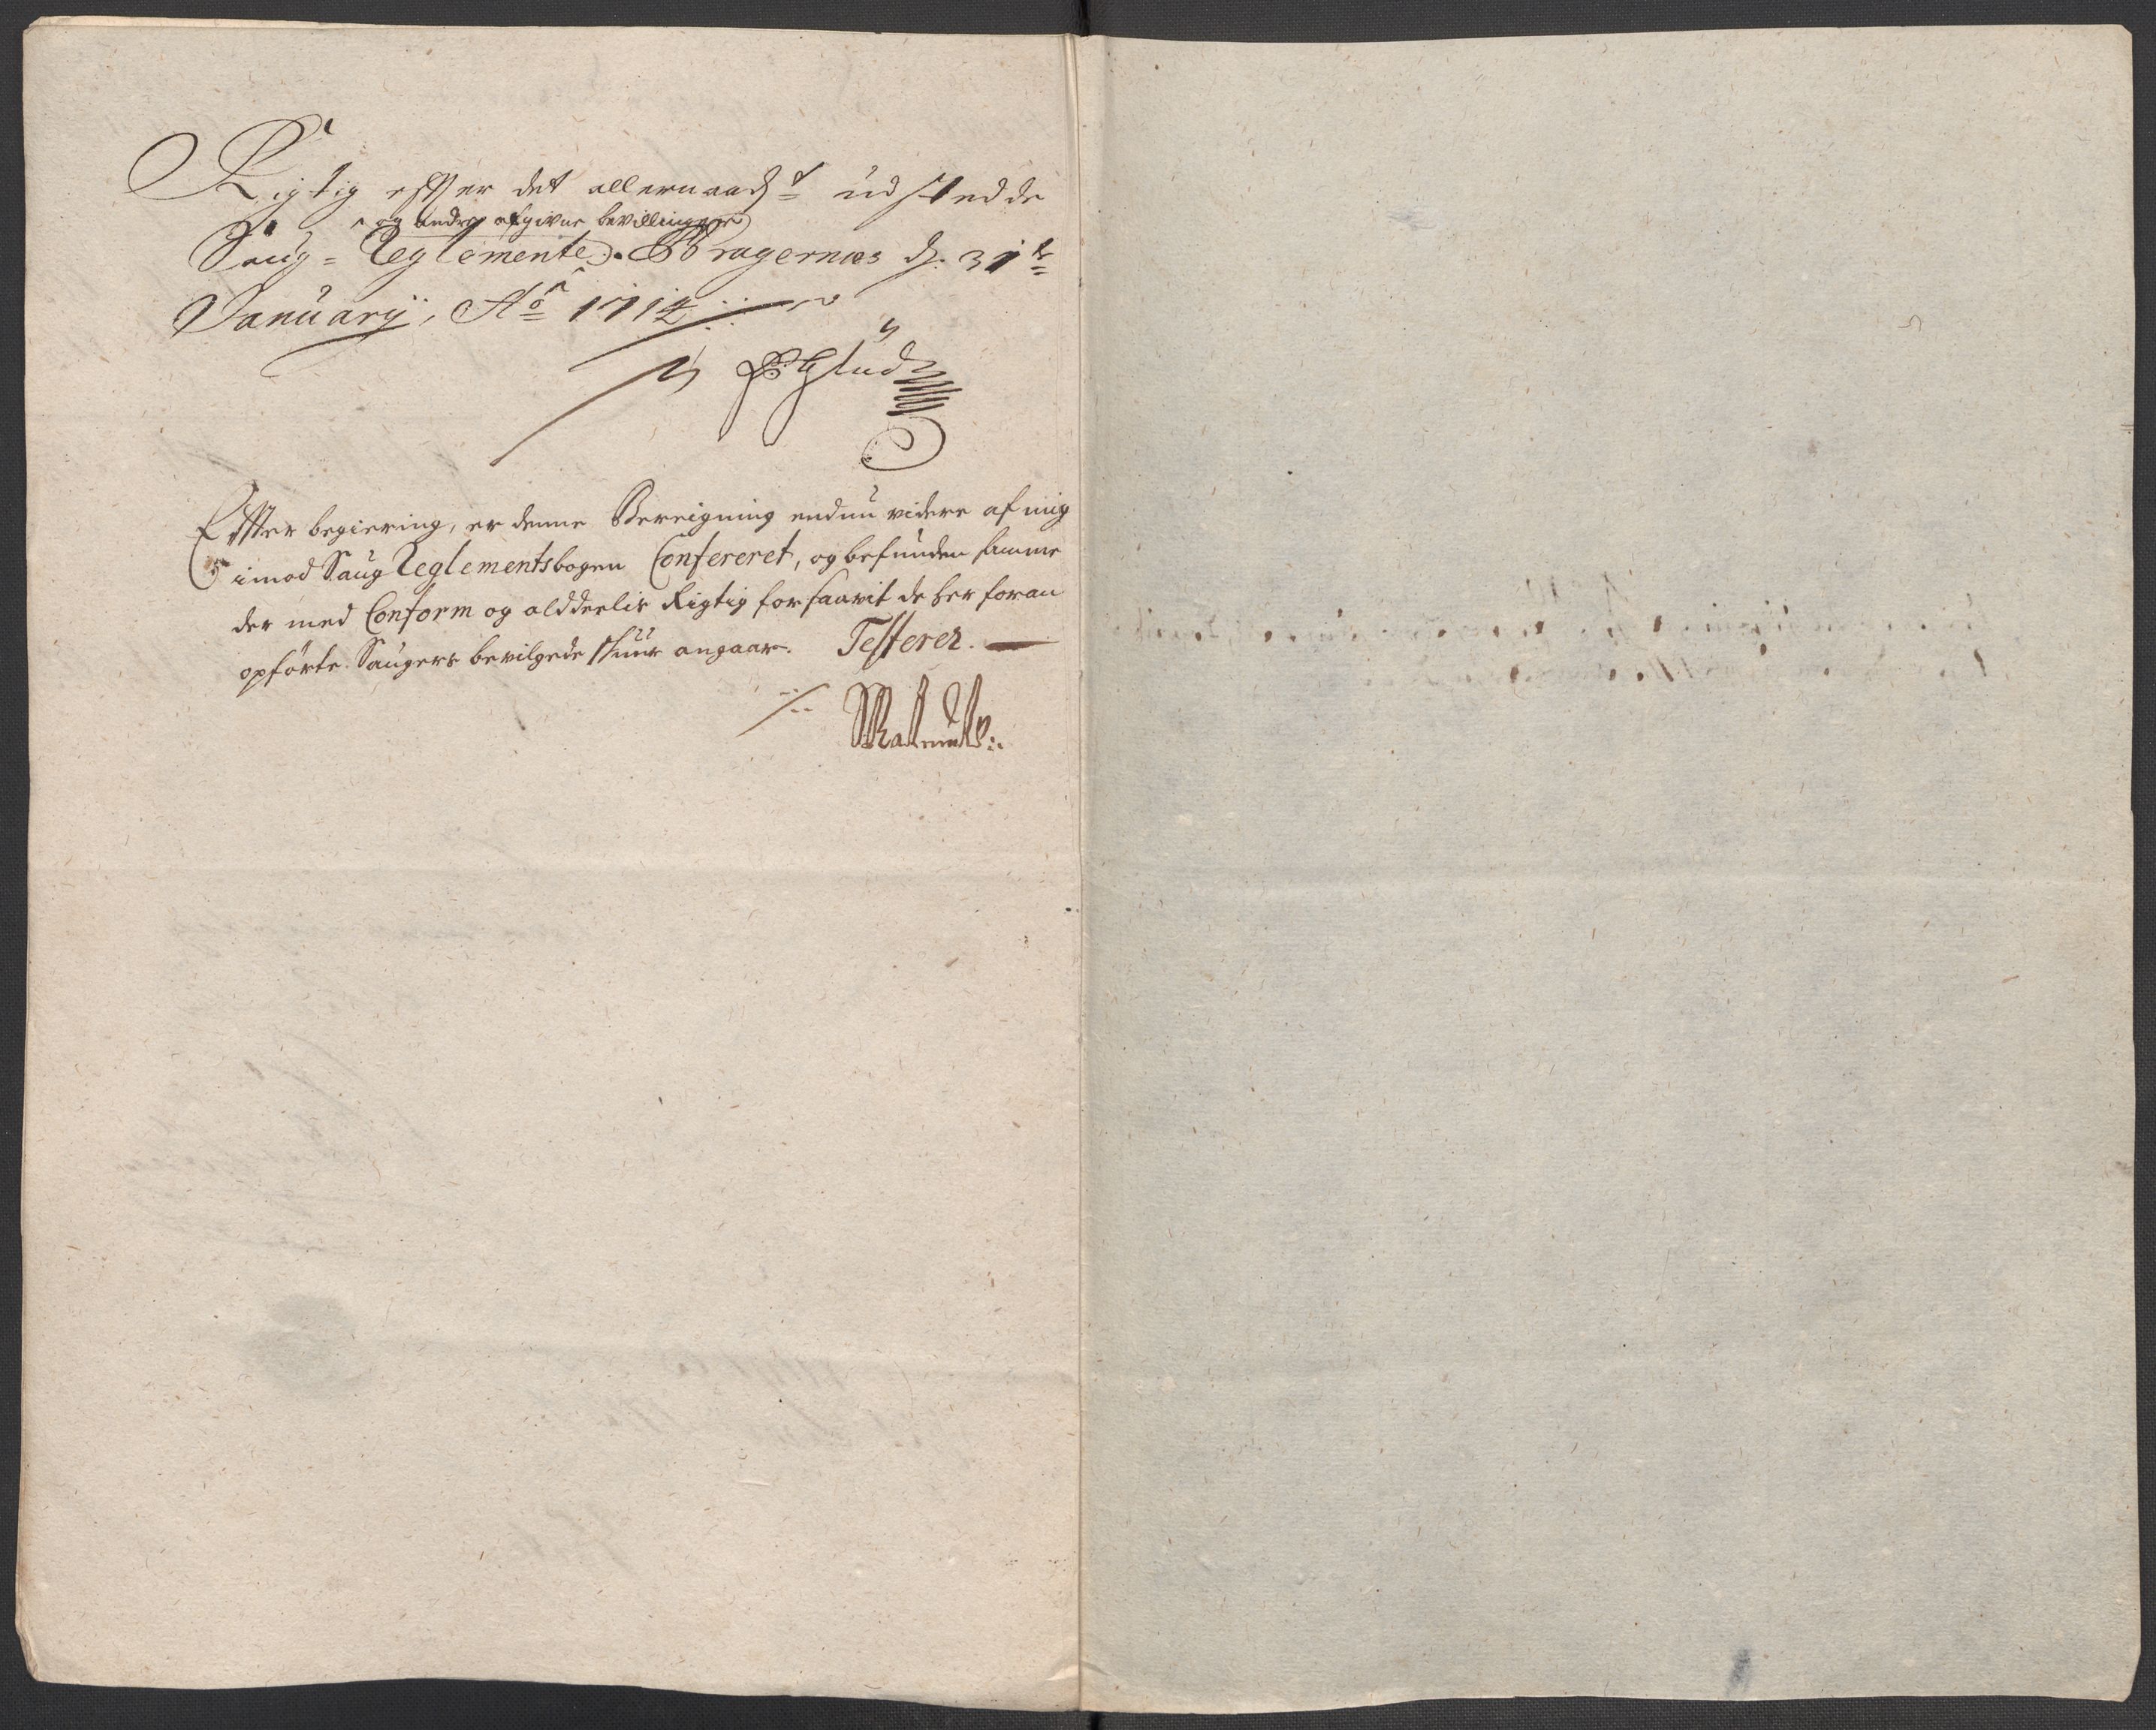 Rigtig effter det allernaadst udstedde
^ og andre afgivne bevillingger
Saug=Reglemente^. Bragernæs d. 31te
January, Ao 1714
P Glud
Effter begiering, er denne Bereigning endnu videre af mig
imod Saug Reglementsbogen Confereret, og befunden samme
der med Conform og alddeelis Rigtig for saavit de her foran
opførte Saugers bevilgede skuur angaar. Testerer.